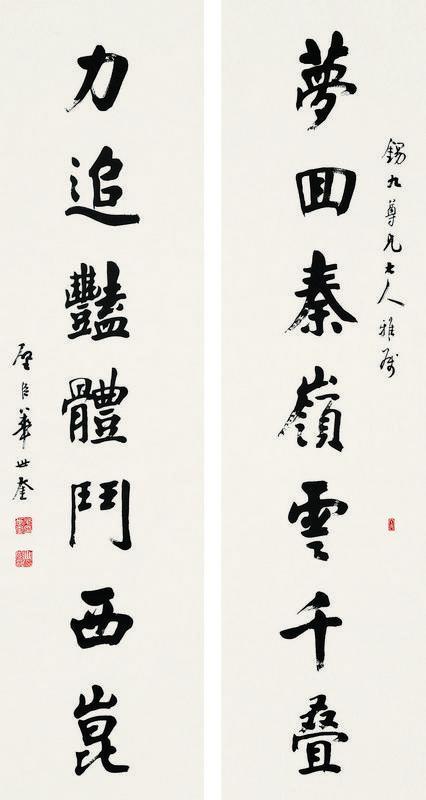 錫九尊兄大人雅屬
夢回秦嶺雲千叠
力追豔體鬥西崑
璧臣華世奎